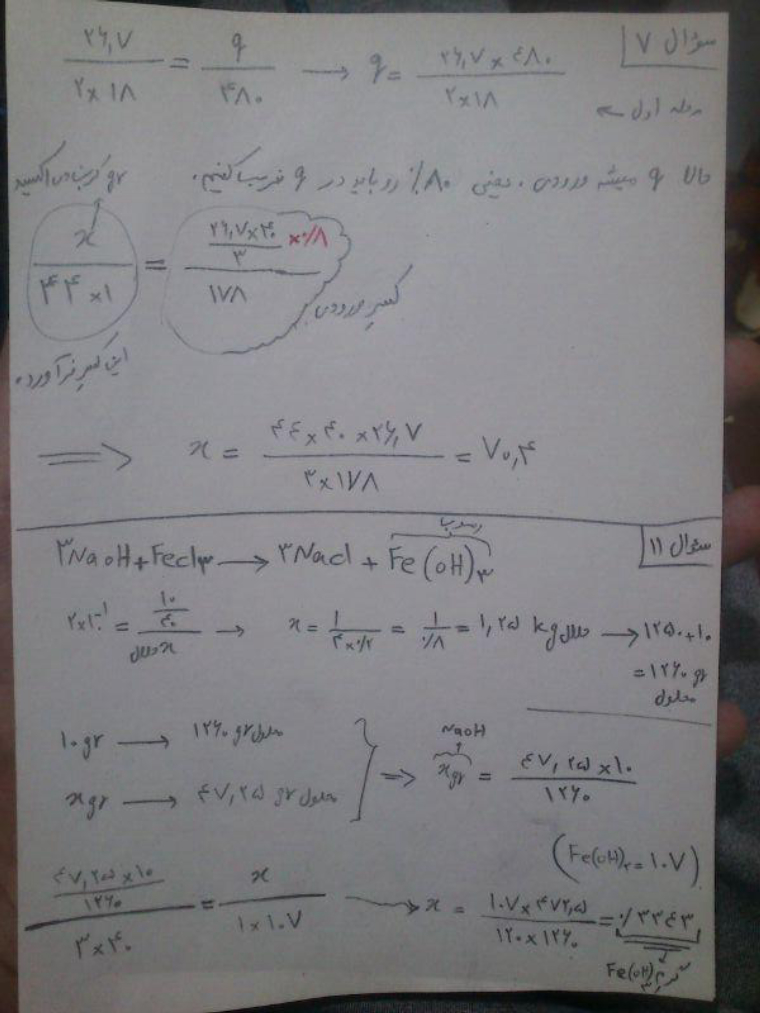 سؤال ۷
۲۶,۷ / ۲×۱۸ = q / ۴۸۰ → q = ۲۶,۷×۴۸۰ / ۲×۱۸
مرحله اول
حالا q میشه ورودی. یعنی ۸۰٪ رو باید در q ضریب کنیم.
gr کربن دی اکسید
x / ۴۴×۱ = ۲۶,۷×۴۰ / ۳ ×۰/۸ / ۱۷۸
کسر ورودی
این کسر فرآورده
⇒ x = ۴۴×۴۰×۲۶,۷ / ۳×۱۷۸ = ۷۰,۴
سؤال ۱۱
رسوب
۳NaOH + FeCl۳ → ۳NaCl + Fe(OH)۳
۲×۱۰⁻¹ = ۱۰/۴۰ / x حلال → x = ۱ / ۴×۰/۲ = ۱ / ۰/۸ = ۱,۲۵ kg حلال → ۱۲۵۰+۱۰
= ۱۲۶۰ gr
محلول
۱۰ gr → ۱۲۶۰ gr محلول
x gr → ۴۷,۲۵ gr محلول
NaOH
⇒ x gr = ۴۷,۲۵×۱۰ / ۱۲۶۰
(Fe(OH)۳ = ۱۰۷)
۴۷,۲۵×۱۰ / ۱۲۶۰ / ۳×۴۰ = x / ۱×۱۰۷ → x = ۱۰۷×۴۷۲,۵ / ۱۲۰×۱۲۶۰ = ۰/۳۳۴۳
گرم Fe(OH)۳